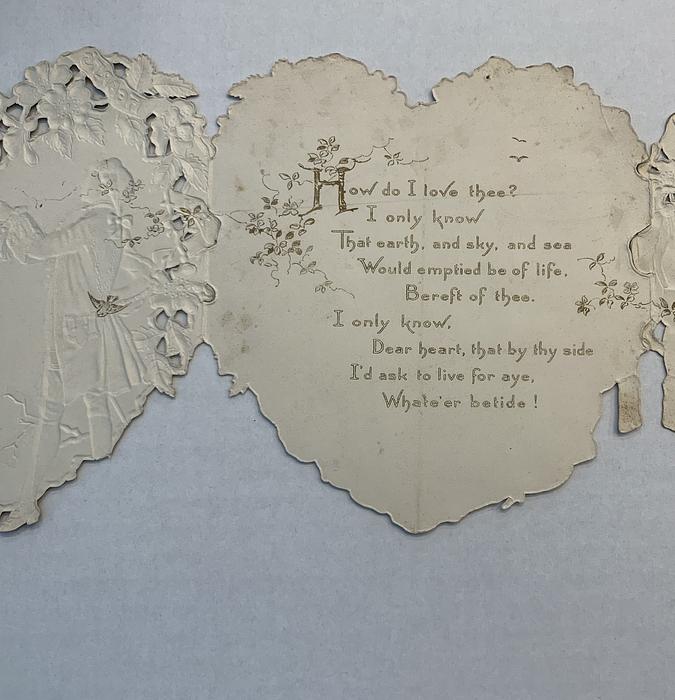 How do I love thee?
I only know
That earth, and sky, and sea
Would emptied be of life,
Bereft of thee.
I only know,
Dear heart, that by thy side
I'd ask to live for aye,
Whate'er betide !